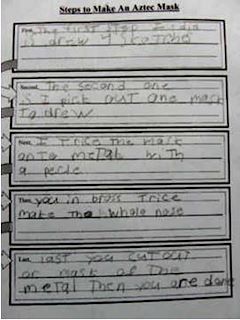 Steps to Make An Aztec Mask
First, The first step I did
is drew 4 scetches
Second, The second one
is I pick out one mask
to drew
Next, I trise the mask
onto metal with
a pecle
Then, you in brass trice
make the whole nose
Last, last you cut out
or mask of the
metal Then you are done